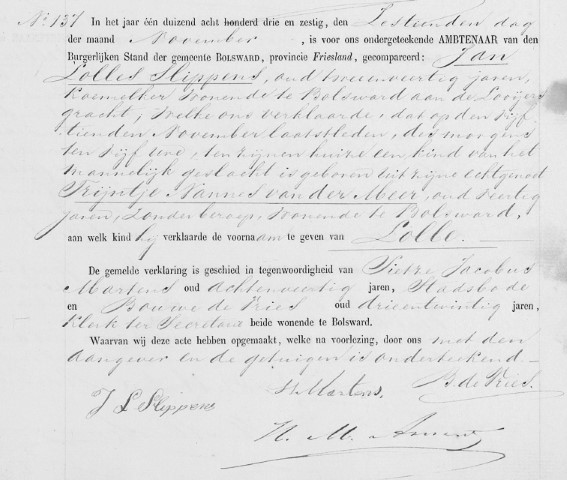 No 137 In het jaar één duizend acht honderd drie en zestig, den Zestienden dag
der maand November, is voor ons ondergeteekende AMBTENAAR van den
Burgerlijken Stand der gemeente BOLSWARD, provincie Friesland, gecompareerd: Jan
Lolles Slippens, oud tweeenveertig jaren,
Koemelker wonende te Bolsward aan de Looijers
gracht, welke ons verklaarde, dat op den vijf
tienden November laatstleden, des morgens
ten vijf ure, ten zijnen huize een kind van het
mannelijk geslacht is geboren uit zijne echtgenoot
Trijntje Nannes van der Meer, oud veertig
jaren, zonder beroep, wonende te Bolsward,
aan welk kind hij verklaarde de voornaam te geven van Lolle.
De gemelde verklaring is geschied in tegenwoordigheid van Jacobus
Martens oud achtenveertig jaren, Stadsbode
en Bouwe de Vries oud drieentwintig jaren,
Klerk ter Secretarie beide wonende te Bolsward.
Waarvan wij deze acte hebben opgemaakt, welke na voorlezing, door ons met den
aangever en de getuigen is onderteekend
J L Slippens Martens, B. de Vries.